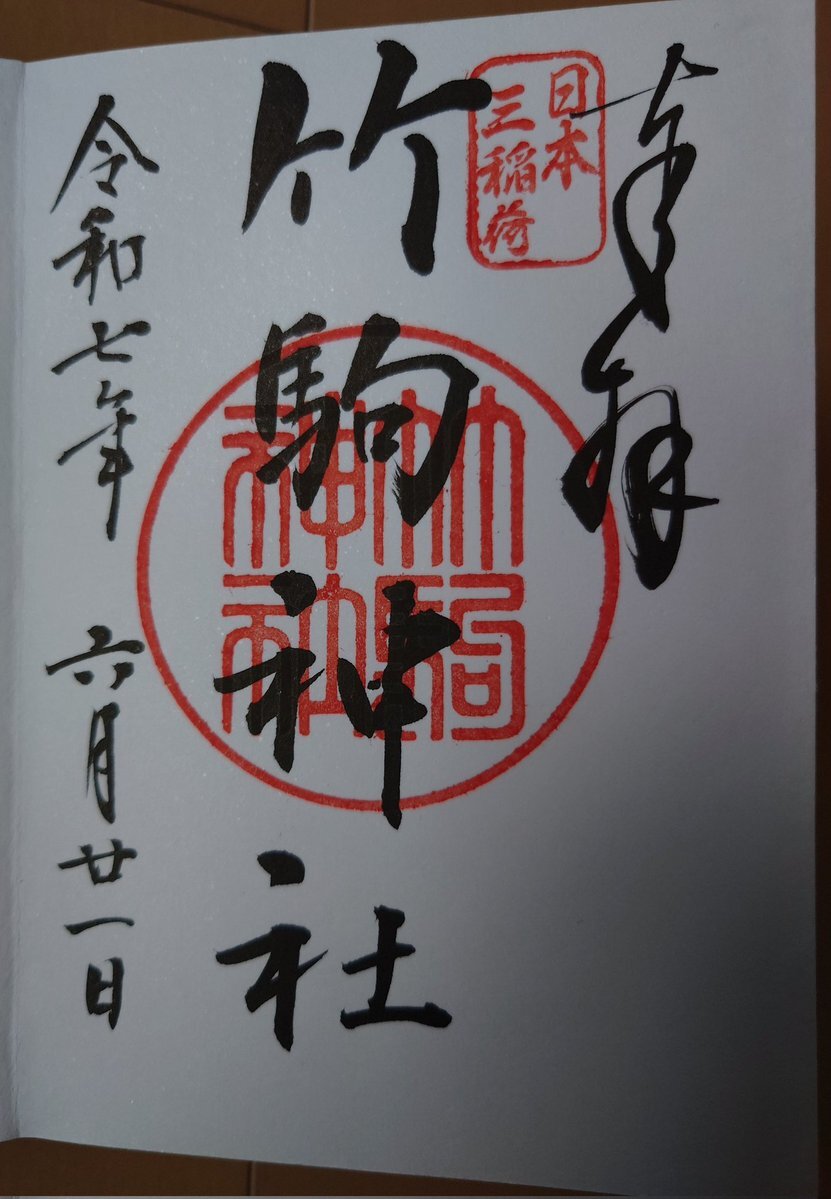 奉拝
日本
三稲荷
竹駒神社
竹駒
神社
令和七年 六月廿一日